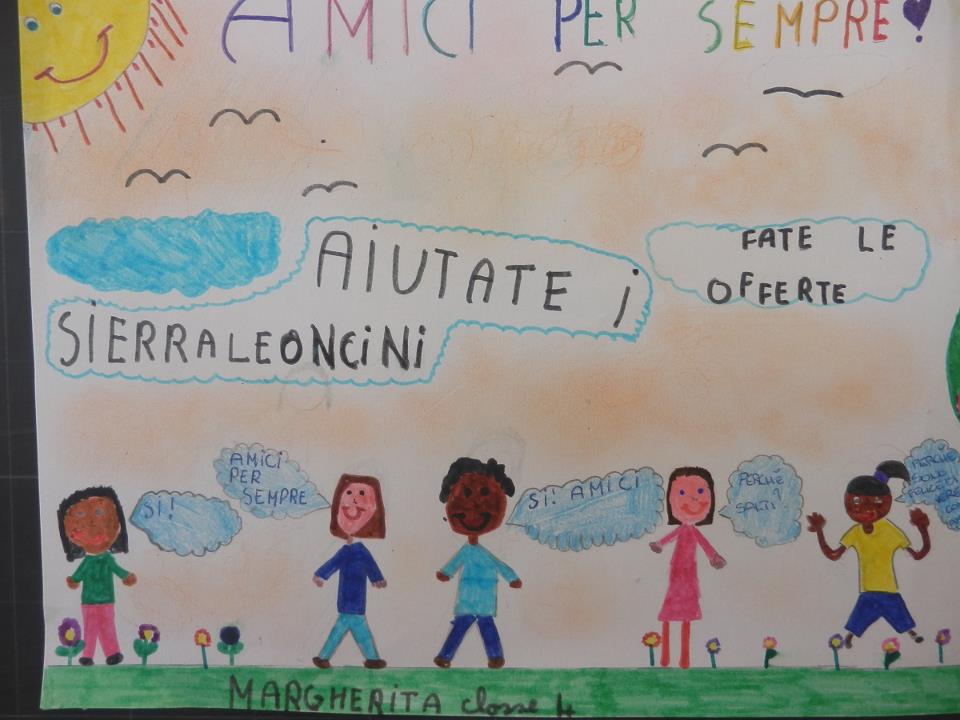 AMICI PER SEMPRE!
AIUTATE i
SIERRALEONCINI
FATE LE
OFFERTE
SI!
AMICI
PER
SEMPRE
SI! AMICI
PERCHÉ
SALTI?
PERCHÈ
SONO
FELICE DI
MARGHERITA classe 4